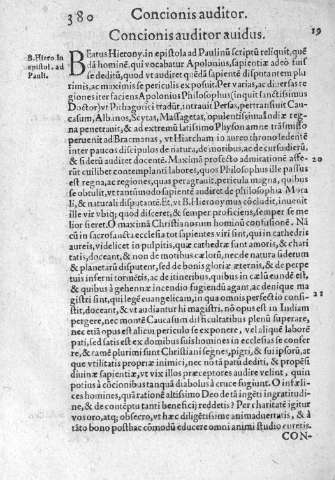 380 Concionis auditor.
Concionis auditor auidus.
19
B. Hiero. in
epistol. ad
Pauli.
BEatus Hierony. in epistola ad Paulinũ scriptũ reliquit, quẽ
dã hominẽ, qui vocabatur Apolonius, sapientiæ adeò fuis
se deditũ, quod vt audiret quẽdã sapiẽtẽ disputantem plu
rimis, ac maximis se periculis exposuit. Per varias, ac diuersas re
giones iter faciens Apolonius Philosophus (inquit sanctissimus
Doctor) vt Pithagorici tradũt, intrauit Persas, pertransiuit Cau-
casum, Albanos, Scytas, Massagetas, opulentissima Indiæ reg
na penetrauit, & ad extremũ latissimo Physon amne trãsmisso
peruenit ad Bracmanas, vt Hiarcham in aureo throno sedentẽ
inter paucos discipulos de natura, de motibus, ac de cursu dierũ,
& siderũ audiret docentẽ. Maximã profecto admirationẽ affe-
20
rũt cuilibet contemplanti labores, quos Philosophus ille passus
est regna, ac regiones, quas peragrauit, pericula magna, quibus
se obtulit, vt tantũmodo sapientẽ audiret de philosophia Mora
li, & naturali disputantẽ. Et, vt B. Hieronymus cõcludit, inuenit
ille vir vbiq; quod disceret, & semper proficiens, semper se me
lior fieret. O maximã Christianorum hominũ confusionẽ. Nã
cũ in sacrosancta ecclesia tot sapientes viri sint, qui in cathedris
aureis, videlicet in pulpitis, quæ cathedræ sunt amoris, & chari
tatis, doceant, & non de motibus cælorũ, nec de natura siderum
& planetarũ disputent, sed de bonis gloriæ æternis, & de perpe
tuis inferni tormẽtis, ac de itineribus, quibus in cælũ eundẽ est,
& quibus à gehennæ incendio fugiendũ agant, ac denique ma
gistri sint, qui legẽ euangelicam, in qua omnis perfectio consi-
21
stit, doceant, & vt audiantur hi magistri, nõ opus est in Indiam
pergere, nec montẽ Caucasum difficultatibus plenũ superare,
nec etiã opus est alicui periculo se exponere, vel aliquẽ laborẽ
pati, sed satis est ex domibus suis homines in ecclesias se confer
re, & tamẽ plurimi sunt Christiani segnes, pigri, & sui ipsorũ, at
que vtilitatis propriæ inimici, nec nõ tã parũ dediti, & propẽsi
diuinæ sapientiæ, vt vix illos præceptores audire velint, quin
potius à cõcionibus tanquã diabolus à cruce fugiunt. O infæli-
ces homines, quã rationẽ altissimo Deo de tã ingẽti ingratitudi-
ne, & de contẽptu tanti beneficij reddetis? Per charitatẽ igitur
vos oro, atq; obsecro, vt hæc diligentissimè animaduertatis, & à
tãto bono posthac cõmodũ educere omni animi studio curetis.
CON-